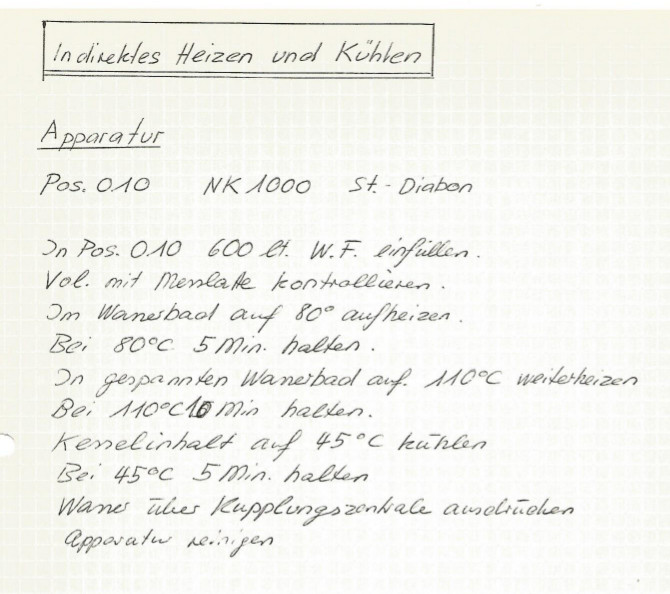 Indirektes Heizen und Kühlen
Apparatur
Pos. 010 NK 1000 St.-Diabon
In Pos. 010 600 lt. W.F. einfüllen.
Vol. mit Messlatte kontrollieren.
Im Wasserbad auf 80° aufheizen.
Bei 80°C 5 Min. halten.
In gespannten Wasserbad auf. 110°C weiterheizen
Bei 110°C 10 Min halten.
Kesselinhalt auf 45°C kühlen
Bei 45°C 5 Min. halten
Wasser über Kupplungszentrale ausdrücken
Apparatur reinigen